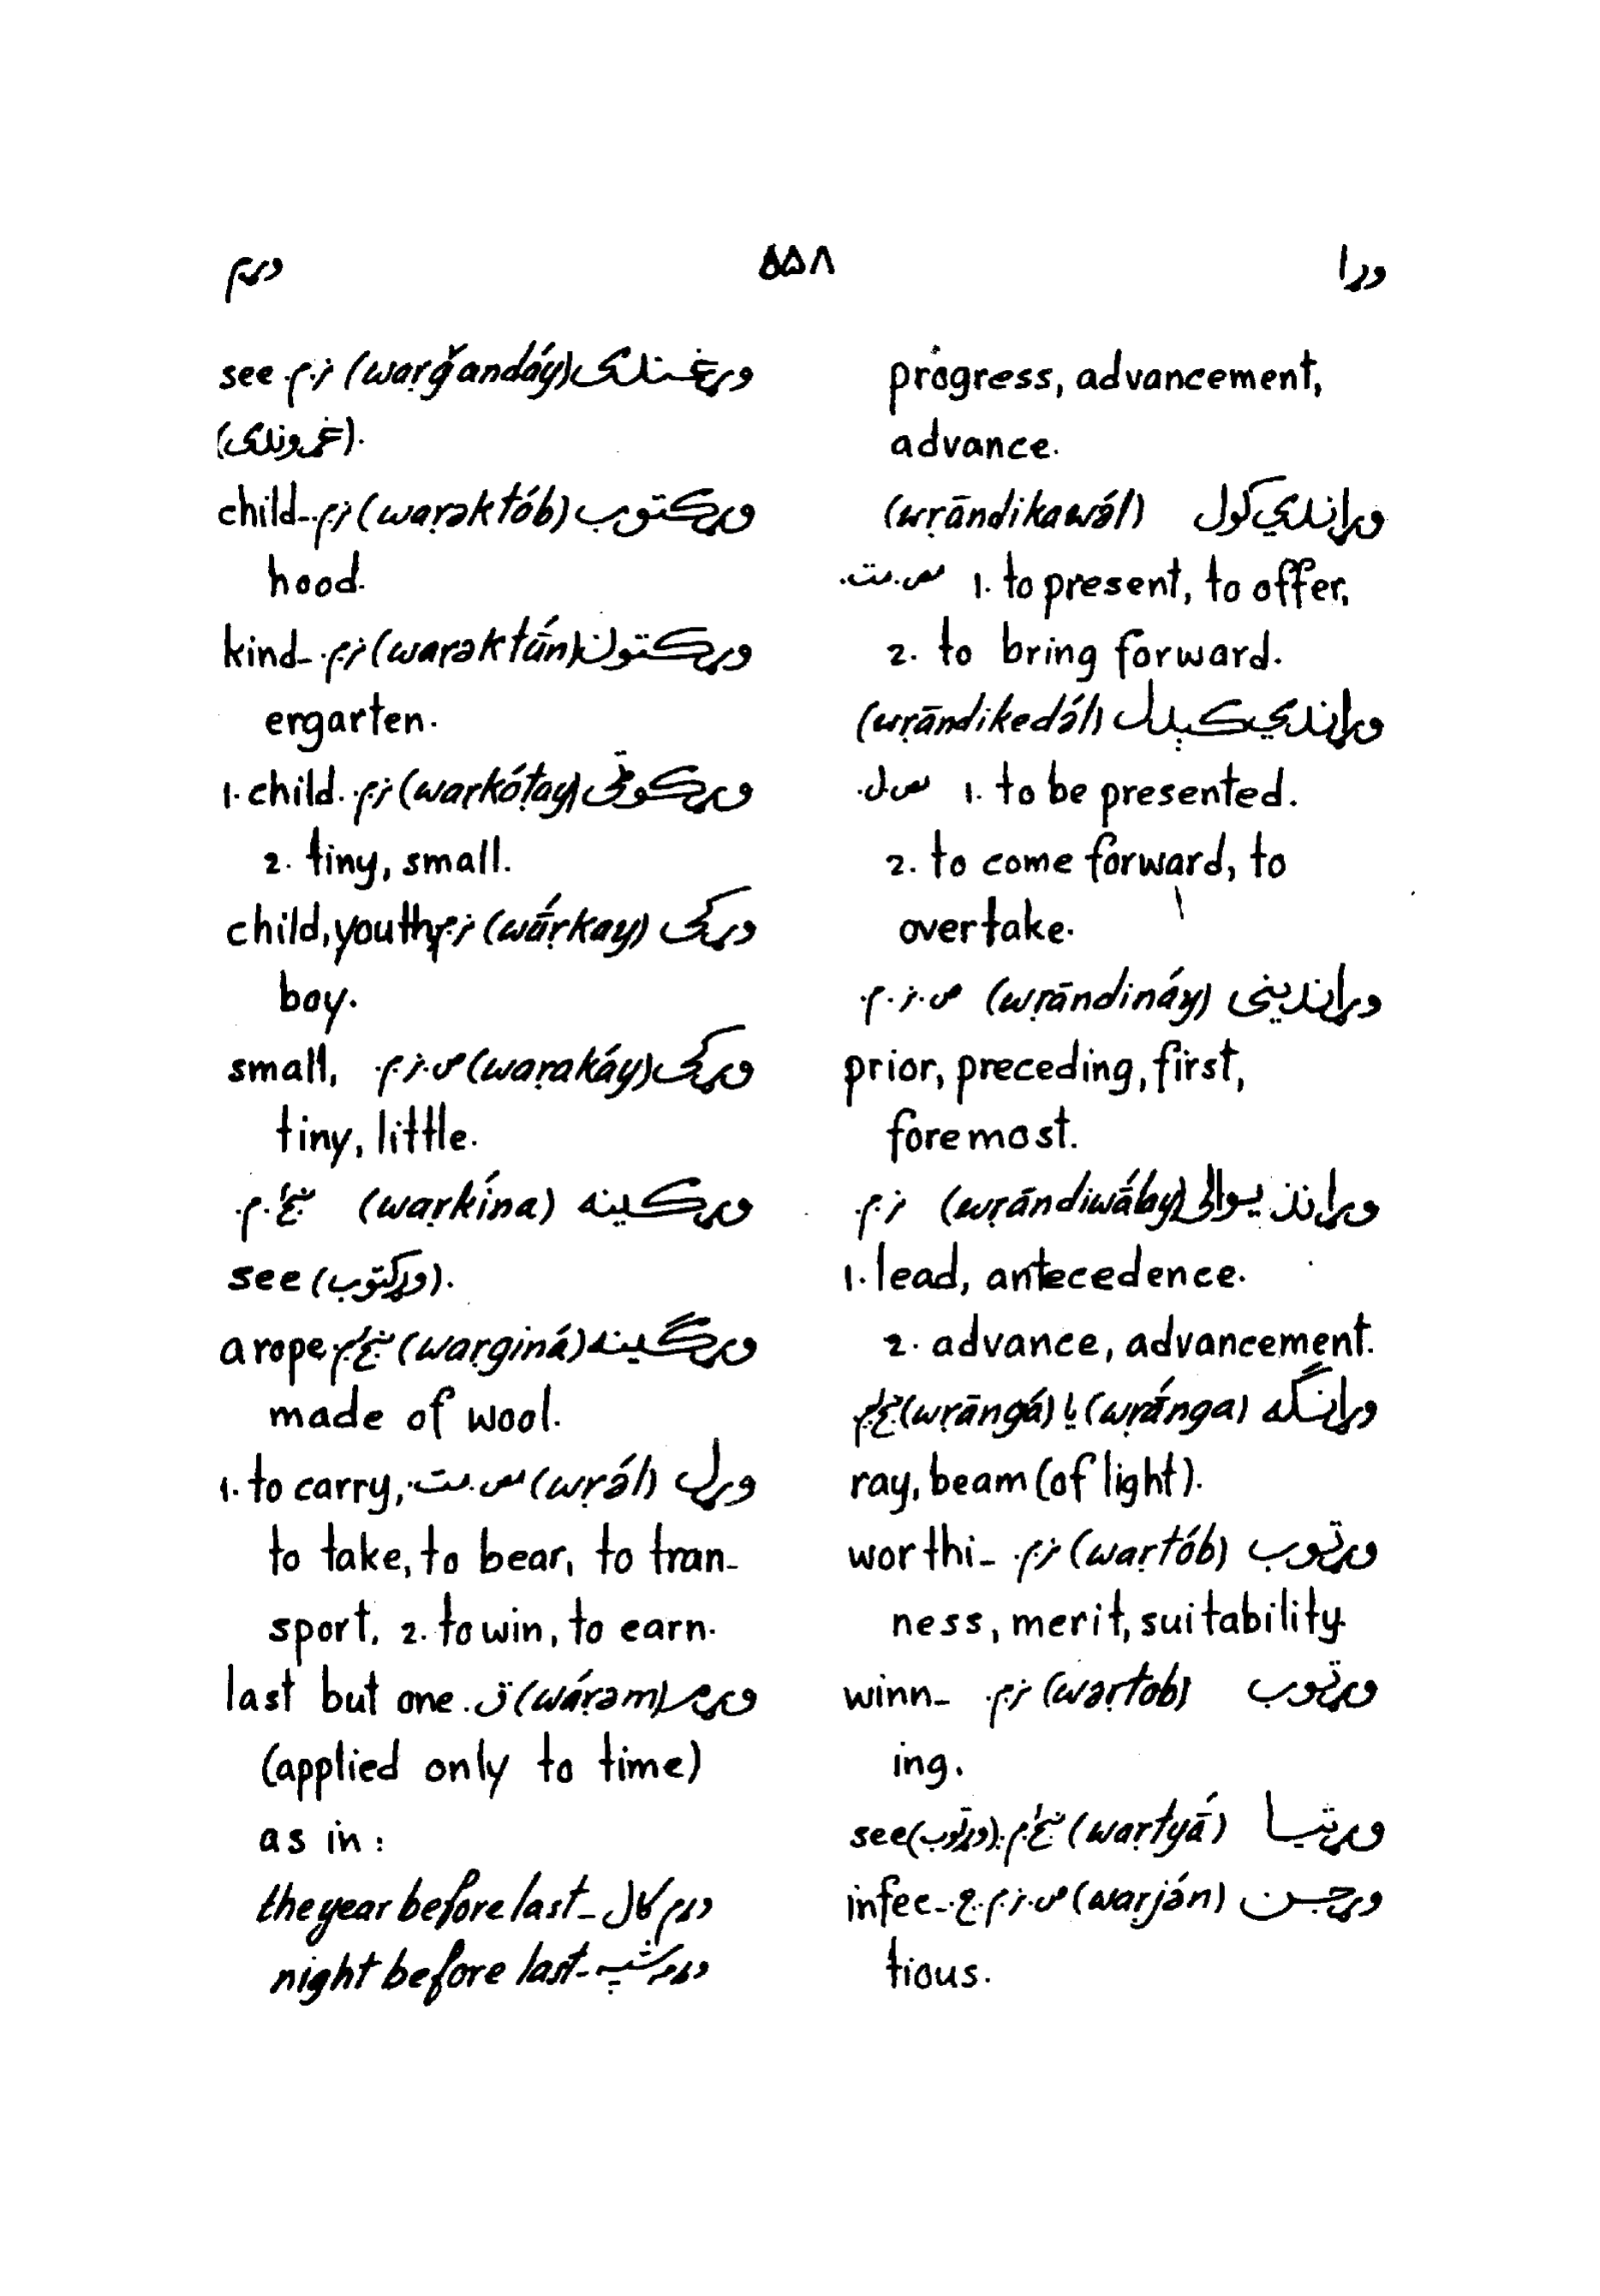 وړا ۵۵۸ وړم
progress, advancement,
advance.
وړاندي کول (wṛāndikawə́l)
س.مت. 1. to present, to offer,
2. to bring forward.
وړاندي کېدل (wṛāndikedə́l)
س.ل. 1. to be presented.
2. to come forward, to
overtake.
وړاندینی (wṛāndináy) ص.ن.م.
prior, preceding, first,
foremost.
وړاندیوالی (wṛāndiwā́lay) ن.م.
1. lead, antecedence.
2. advance, advancement.
وړانگه (wṛā́nga) یا (wṛāngá)
ray, beam (of light).
وړتوب (waṛtób) ن.م. worthi-
ness, merit, suitability.
وړتوب (wəṛtob) ن.م. winn-
ing.
وړتیا (waṛtyā́) see (وړتوب).
وړجن (waṛján) ص.ن.م.ج. infec-
tious.
وړغندی (waṛğandáy) ن.م. see
(غړوندی).
وړکتوب (waṛəktób) ن.م. child-
hood.
وړکتون (waṛəktū́n) ن.م. kind-
ergarten.
وړکوټی (waṛkóṭay) ن.م. 1. child.
2. tiny, small.
وړکی (wā́ṛkay) ن.م. child, youth
boy.
وړکی (waṛakáy) ص.ن.م. small,
tiny, little.
وړکینه (waṛkína)
see (وړکتوب).
وړگینه (waṛginá) a rope
made of wool.
وړل (wṛə́l) س.مت. 1. to carry,
to take, to bear, to tran-
sport. 2. to win, to earn.
وړم (wáṛəm) ق. last but one.
(applied only to time)
as in:
وړم کال - the year before last
وړمه شپه - night before last